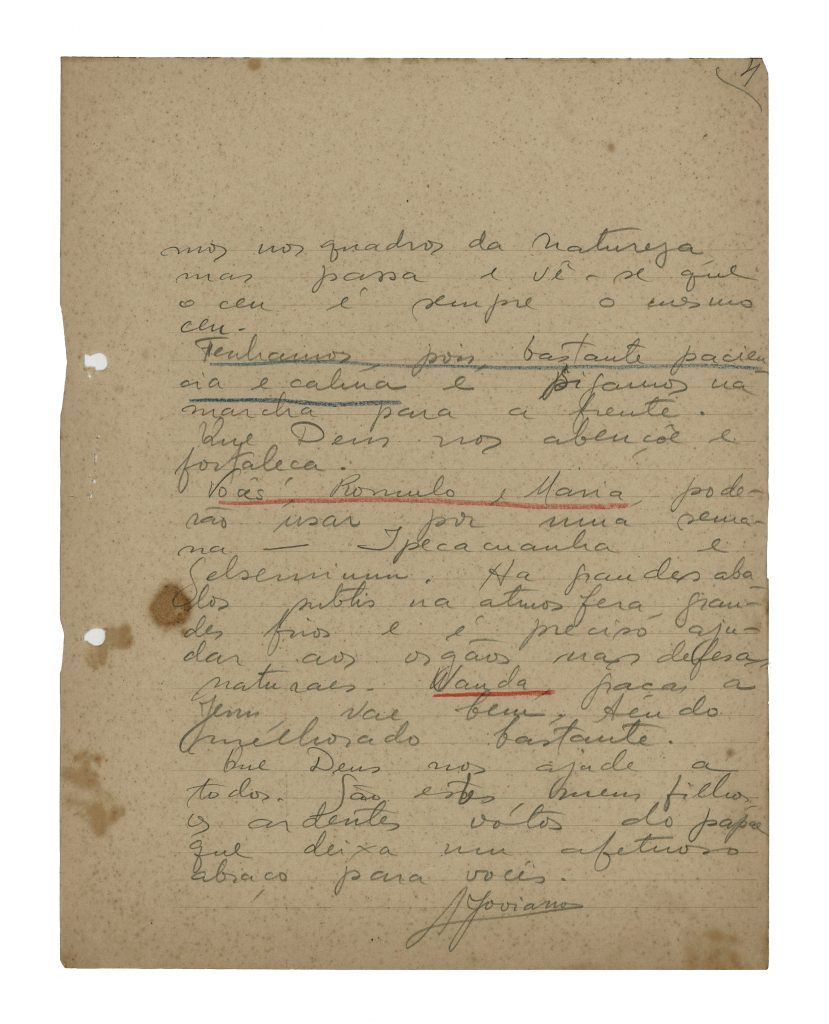 4
mos nos quadros da natureza
mas passa e vê-se que
o ceu é sempre o mesmo
ceu.
Tenhamos, pois, bastante pacien-
cia e calma e sigamos na
marcha para a frente.
Que Deus nos abençôe e
fortaleça.
Vocês, Romulo e Maria, pode-
rão usar por uma sema-
na — Ipecacuanha e
Gelsemium. Ha grandes aba
los subtis na atmosfera, gran-
des frios e é preciso aju-
dar aos orgãos nas defesas
naturaes. Wanda, graças a
Jesus, vae bem, tendo
melhorado bastante.
Que Deus nos ajude a
todos. São estes, meus filhos,
os ardentes vótos do papae
que deixa um afetuoso
abraço para vocês.
A Joviano